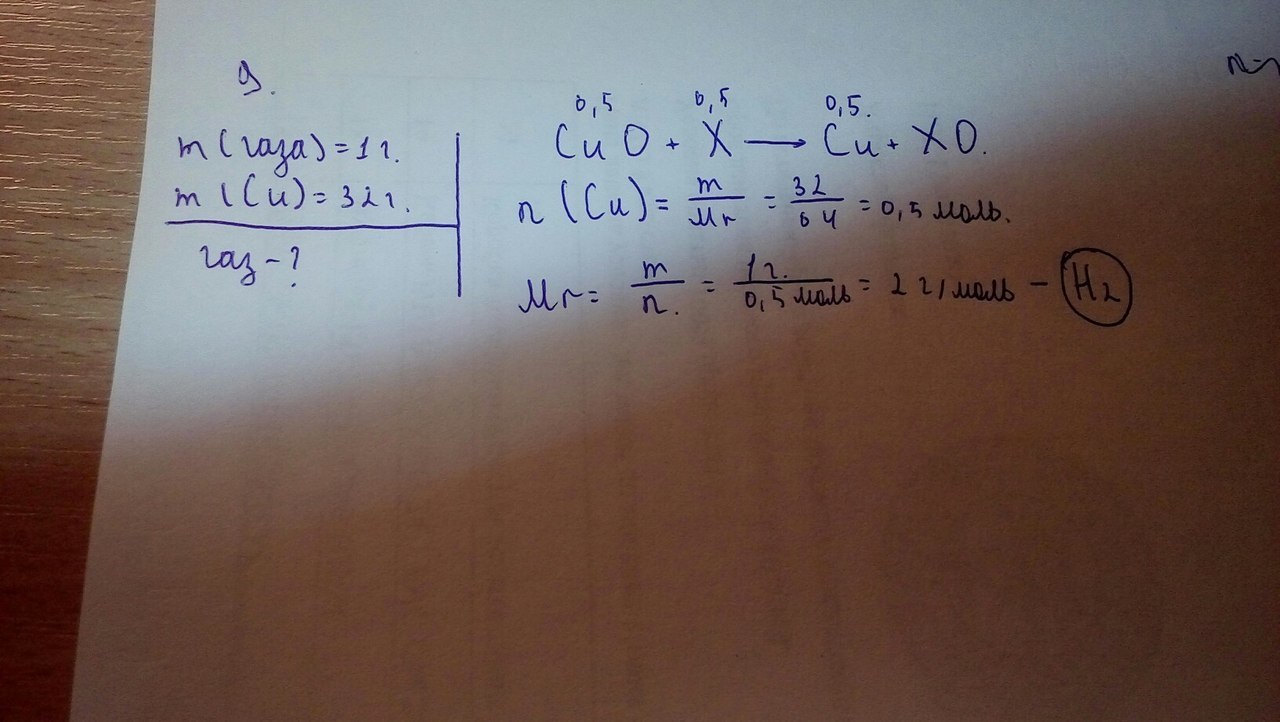 9.
m (газа) = 1 г.
m (Cu) = 32 г.
газ - ?
0,5 0,5 0,5.
CuO + X → Cu + XO.
n (Cu) = m/Mr = 32/64 = 0,5 моль.
Mr = m/n. = 1 г./0,5 моль = 2 г/моль - H2